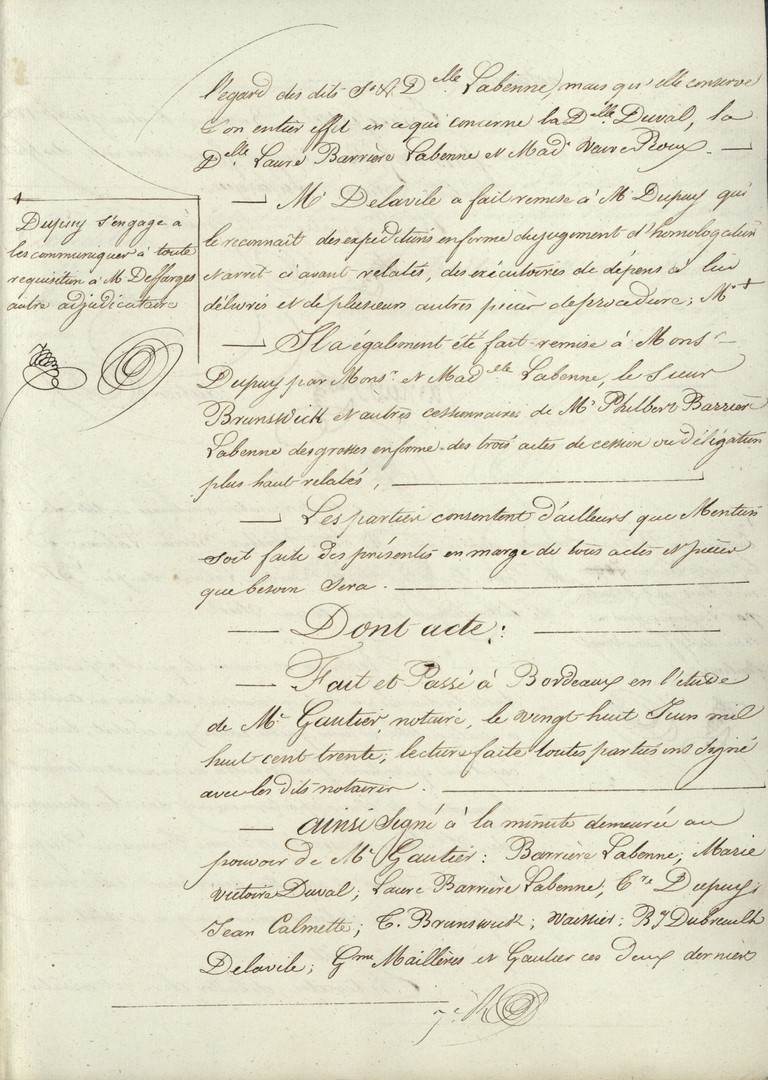 l'égard des dits Sr & Delle Labenne, mais qu'elle conserve
son entier effet en ce qui concerne la Delle Duval, la
Delle Laure Barrière Labenne et Made Veuve Roux. —
— Mr Delavile a fait remise à Mr Dupuy qui
le reconnaît des expéditions en forme du jugement d'homologation
et arrêt ci avant relatés, des exécutoires de dépens à lui
délivrés et de plusieurs autres pièces de procédure; Mr +
— Il a également été fait remise à Monsr
Dupuy par Monsr et Madelle Labenne, le Sieur
Brunswick et autres cessionnaires de Mr Philbert Barrière
Labenne des grosses en forme des trois actes de cession ou délégation
plus haut relatés, —
— Les parties consentent d'ailleurs que Mention
soit faite des présentes en marge de tous actes et pièces
que besoin sera. —
— Dont acte: —
— Fait et Passé à Bordeaux en l'étude
de Me Gautier, notaire, le vingt huit Juin mil
huit cent trente; lecture faite toutes parties ont signé
avec les dits notaires. —
— ainsi Signé à la minute demeurée au
pouvoir de Me Gautier: Barrière Labenne; Marie
Victoire Duval; Laure Barrière Labenne; Dupuy;
Jean Calmette; C. Brunswick; Waissier; Dubreuilh
Delavile; Gme Maillères et Gautier ces deux derniers
+
Dupuy s'engage à
les communiquer à toute
requisition à Mr Deffarges
autre adjudicataire